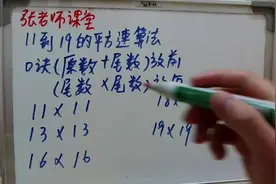 张老师课堂
11到19的平方速算法
口诀(原数+尾数)放前
(尾数×尾数)
11×11
13×13
19×19
16×16